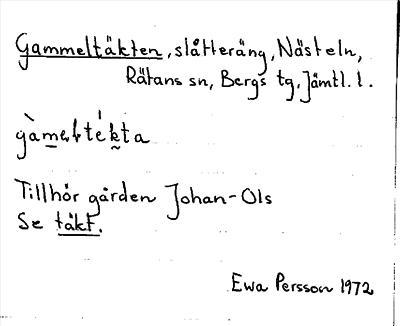 Gammeltäkten, slåtteräng, Nästeln,
Rätans sn, Bergs tg, Jämtl. l.
Tillhör gården Johan-Ols
Se täkt.
Ewa Persson 1972